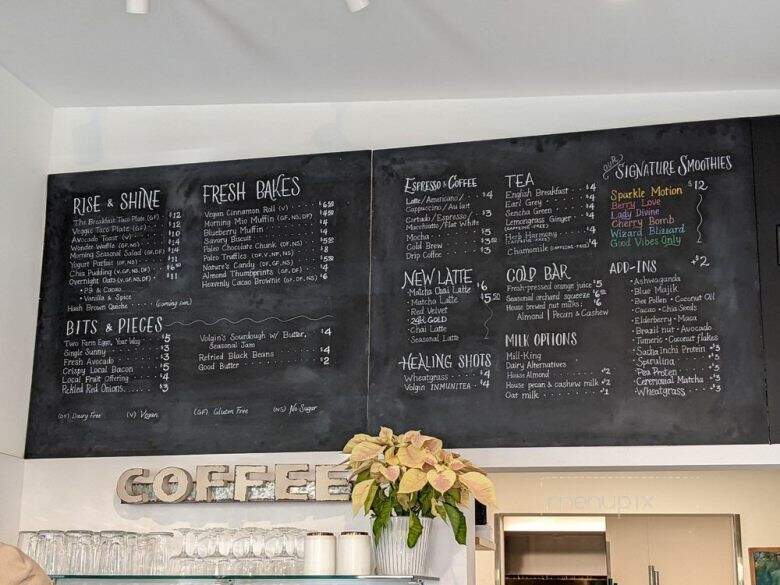 RISE & SHINE
The Breakfast Taco Plate (GF) $12
Veggie Taco Plate (GF) $12
Avocado Toast (V) $10
Wonder Waffle (GF, NS)
Morning Seasonal Salad (GF, DF) $14
Yogurt Parfait (GF, NS)
Chia Pudding (V, GF, NS, DF)
Overnight Oats (V, GF, NS, DF) $11
• PB & Cacao
• Vanilla & Spice
Hash Brown Quiche (coming soon)
FRESH BAKES
Vegan Cinnamon Roll (V)
Morning Mio Muffin (GF, NS, DF)
Blueberry Muffin $4
Savory Biscuit $4
Paleo Chocolate Chunk (DF, NS)
Paleo Truffles (DF, V, NF, NS) $8
Nature's Candy (V, DF, GF, NS)
Almond Thumbprints (GF, DF) $4
Heavenly Cacao Brownie (GF, DF, NS) $6
BITS & PIECES
Two Farm Eggs, Your Way $5
Single Sunny $3
Fresh Avocado $3
Crispy Local Bacon $5
Local Fruit Offering $4
Pickled Red Onions $3
Volgin's Sourdough w/ Butter, $4
Seasonal Jam
Refried Black Beans $4
Good Butter $2
(DF) Dairy Free (V) Vegan (GF) Gluten Free (NS) No Sugar
ESPRESSO & COFFEE
Latte/Americano/ $4
Cappuccino/Au lait
Cortado/Espresso/ $3
Macchiato/Flat White
Mocha $5
Cold Brew
Drip Coffee $3
NEW LATTE $6
• Matcha Chai Latte
• Matcha Latte
• Red Velvet
• 24K GOLD
• Chai Latte
• Seasonal Latte
$5.50
HEALING SHOTS
Wheatgrass $4
Volgin INMUNITEA $4
TEA
English Breakfast $4
Earl Grey $4
Sencha Green $4
Lemongrass Ginger $4
(CAFFEINE-FREE)
Herb Harmony $4
(CAFFEINE-FREE)
Chamomile (CAFFEINE-FREE) $4
COLD BAR
Fresh-pressed orange juice $5
Seasonal orchard squeeze
House brewed nut milks $6
Almond | Pecan & Cashew
MILK OPTIONS
Mill-King
Dairy Alternatives
House Almond $2
House pecan & cashew milk $2
Oat milk $1
OUR SIGNATURE SMOOTHIES
Sparkle Motion $12
Berry Love
Lady Divine
Cherry Bomb
Wizard Blizzard
Good Vibes Only
ADD-INS $2
• Ashwaganda
• Blue Majik
• Bee Pollen • Coconut Oil
• Cacao • Chia Seeds
• Elderberry • Maca
• Brazil nut • Avocado
• Tumeric • Coconut flakes
• Sacha Inchi Protein $3
• Spirulina $3
• Pea Protein $3
• Ceremonial Matcha $3
• Wheatgrass $3
COFFEE
menupix